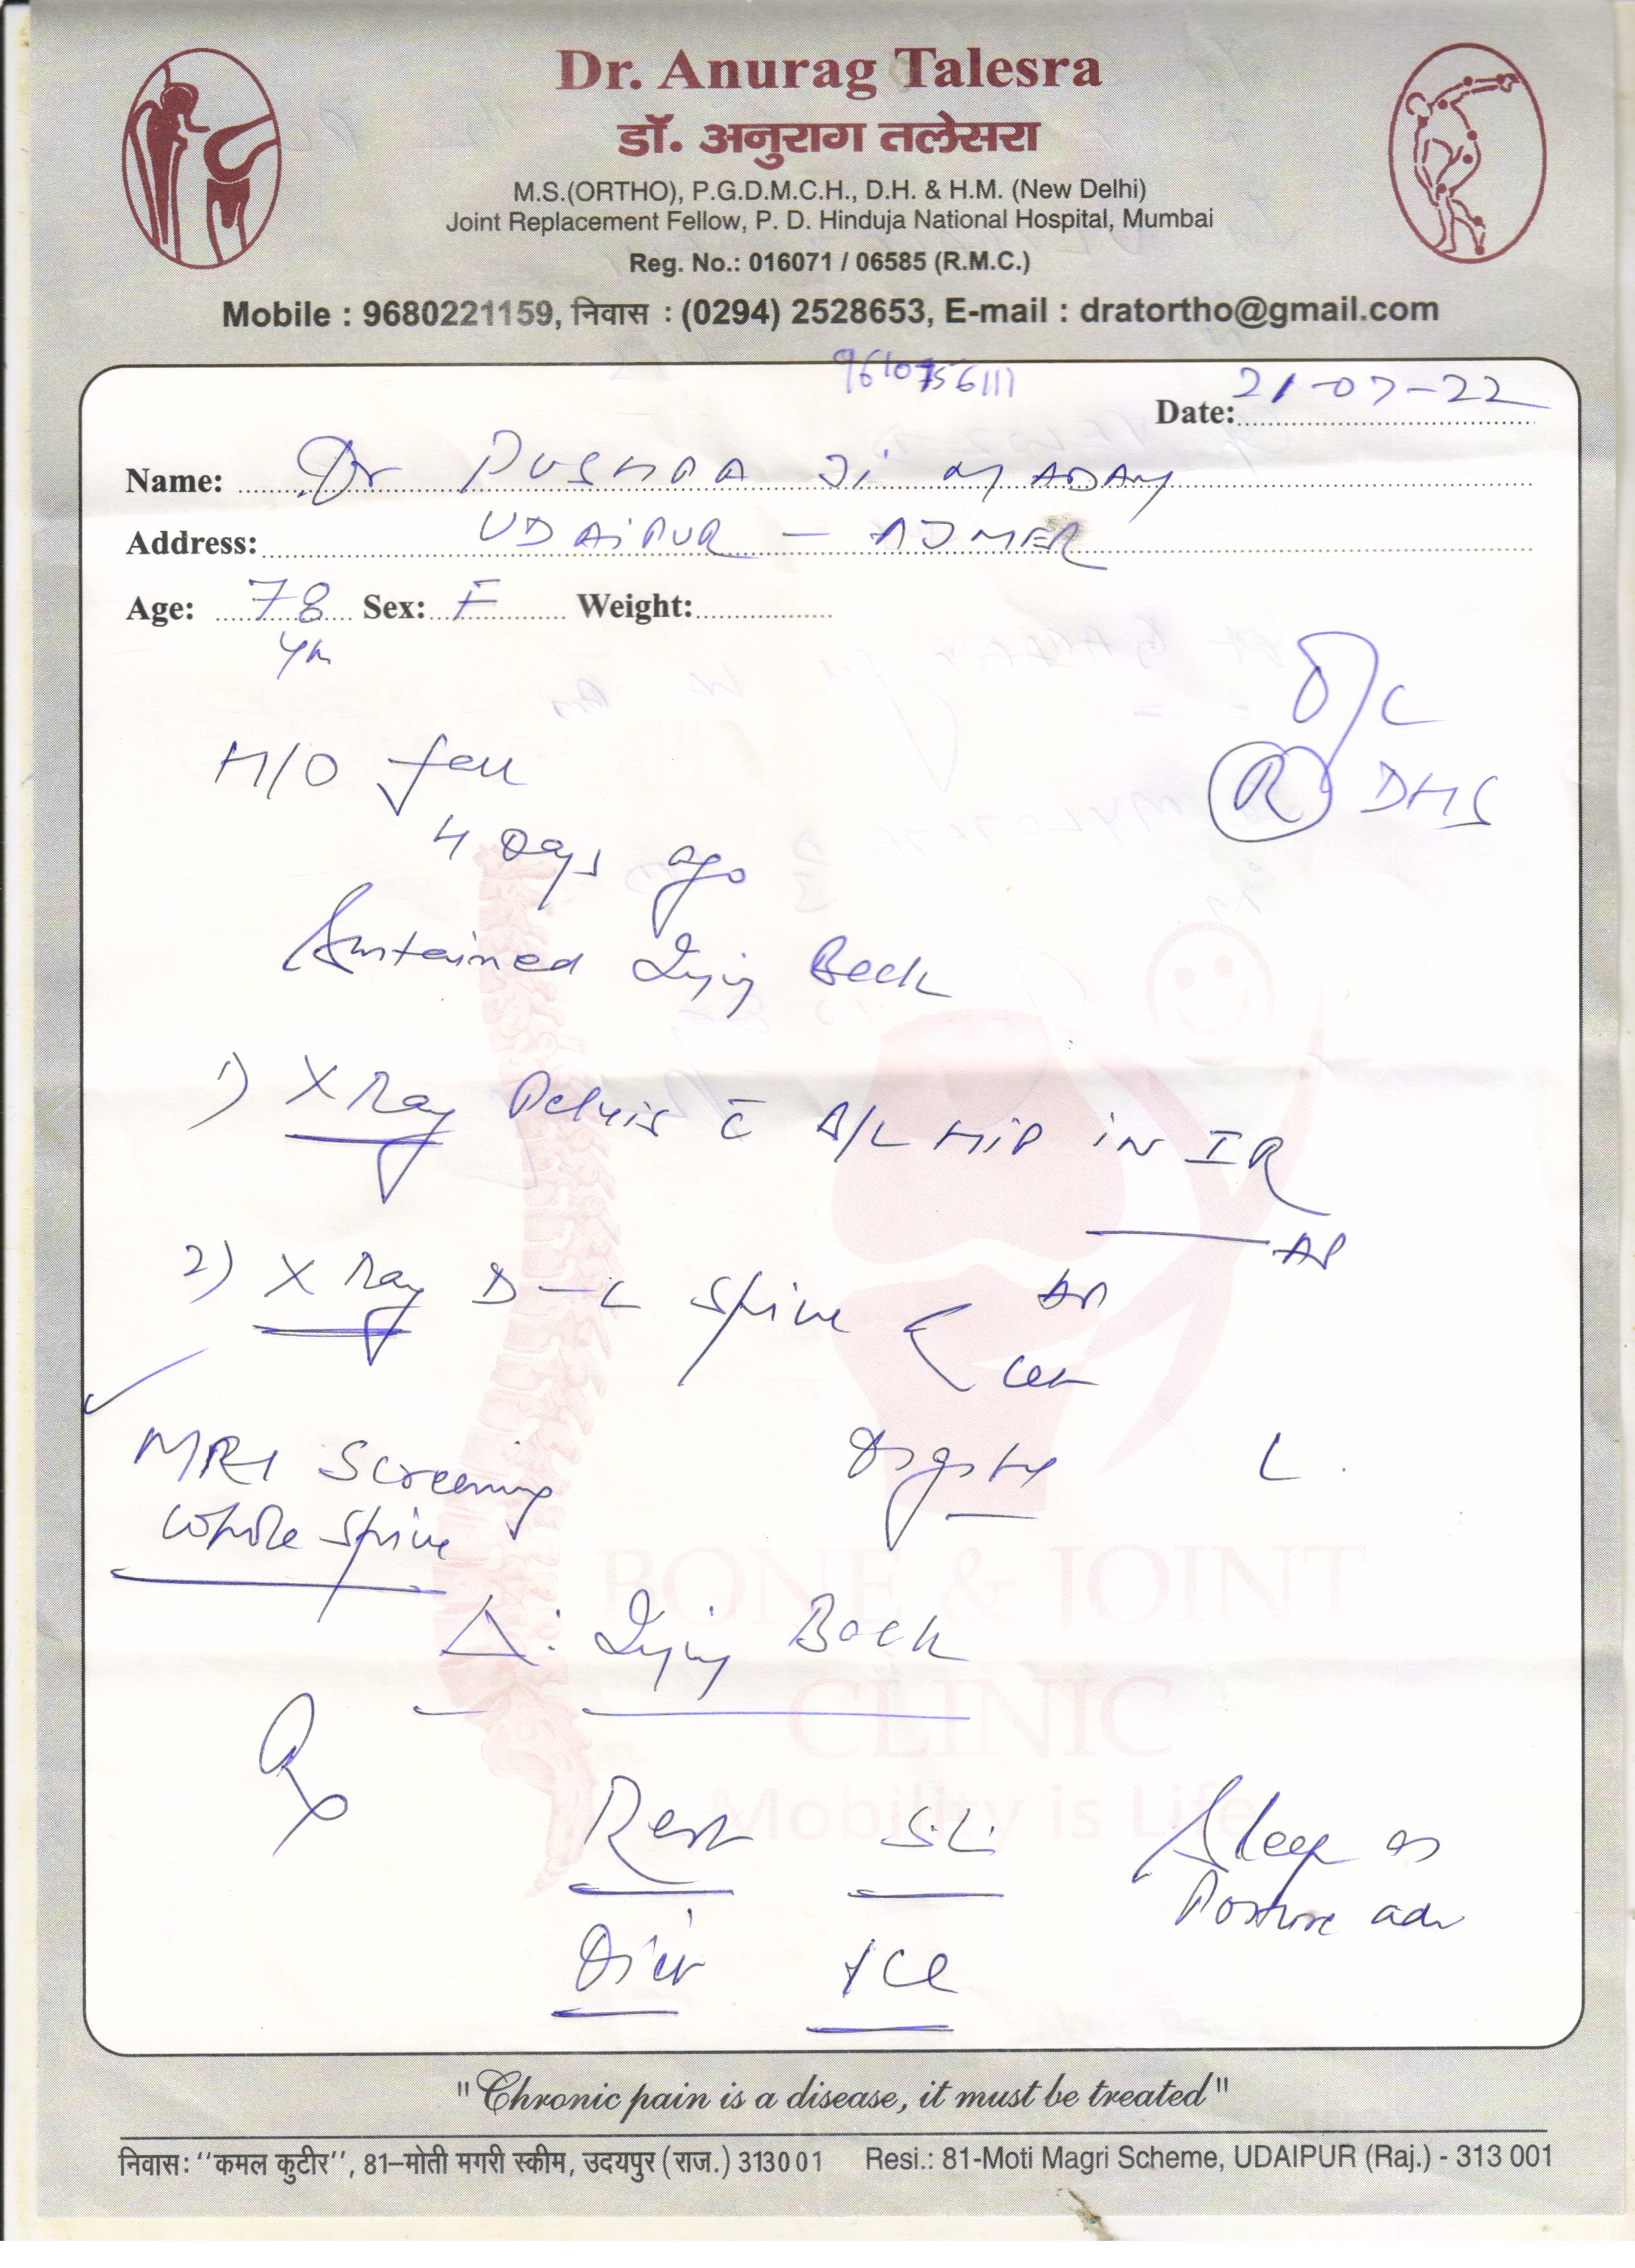 Dr. Anurag Talesra
डॉ. अनुराग तलेसरा
M.S.(ORTHO), P.G.D.M.C.H., D.H. & H.M. (New Delhi)
Joint Replacement Fellow, P. D. Hinduja National Hospital, Mumbai
Reg. No.: 016071 / 06585 (R.M.C.)
Mobile : 9680221159, निवास : (0294) 2528653, E-mail : dratortho@gmail.com
Date: 21-07-22
Name: Dr PUSHPA Ji MADAM
Address: UDAiPUR - AJMER
Age: 78 Sex: F Weight:
O/C
H/O fall
R DHS
4 Days ago
Sustained Injury Back
1) X Ray Pelvis c̄ B/L HiP iN IR
AP
2) X Ray D-L Spine < AP
Lat
MRI Screening
L
Whole Spine
Δ: Injury Back
BONE & JOINT
CLINIC
Mobility is Life
Rest S.L. Sleep as
Posture adv
Diet ICE
"Chronic pain is a disease, it must be treated"
निवास: ‘‘कमल कुटीर’’, 81–मोती मगरी स्कीम, उदयपुर (राज.) 313001 Resi.: 81-Moti Magri Scheme, UDAIPUR (Raj.) - 313 001